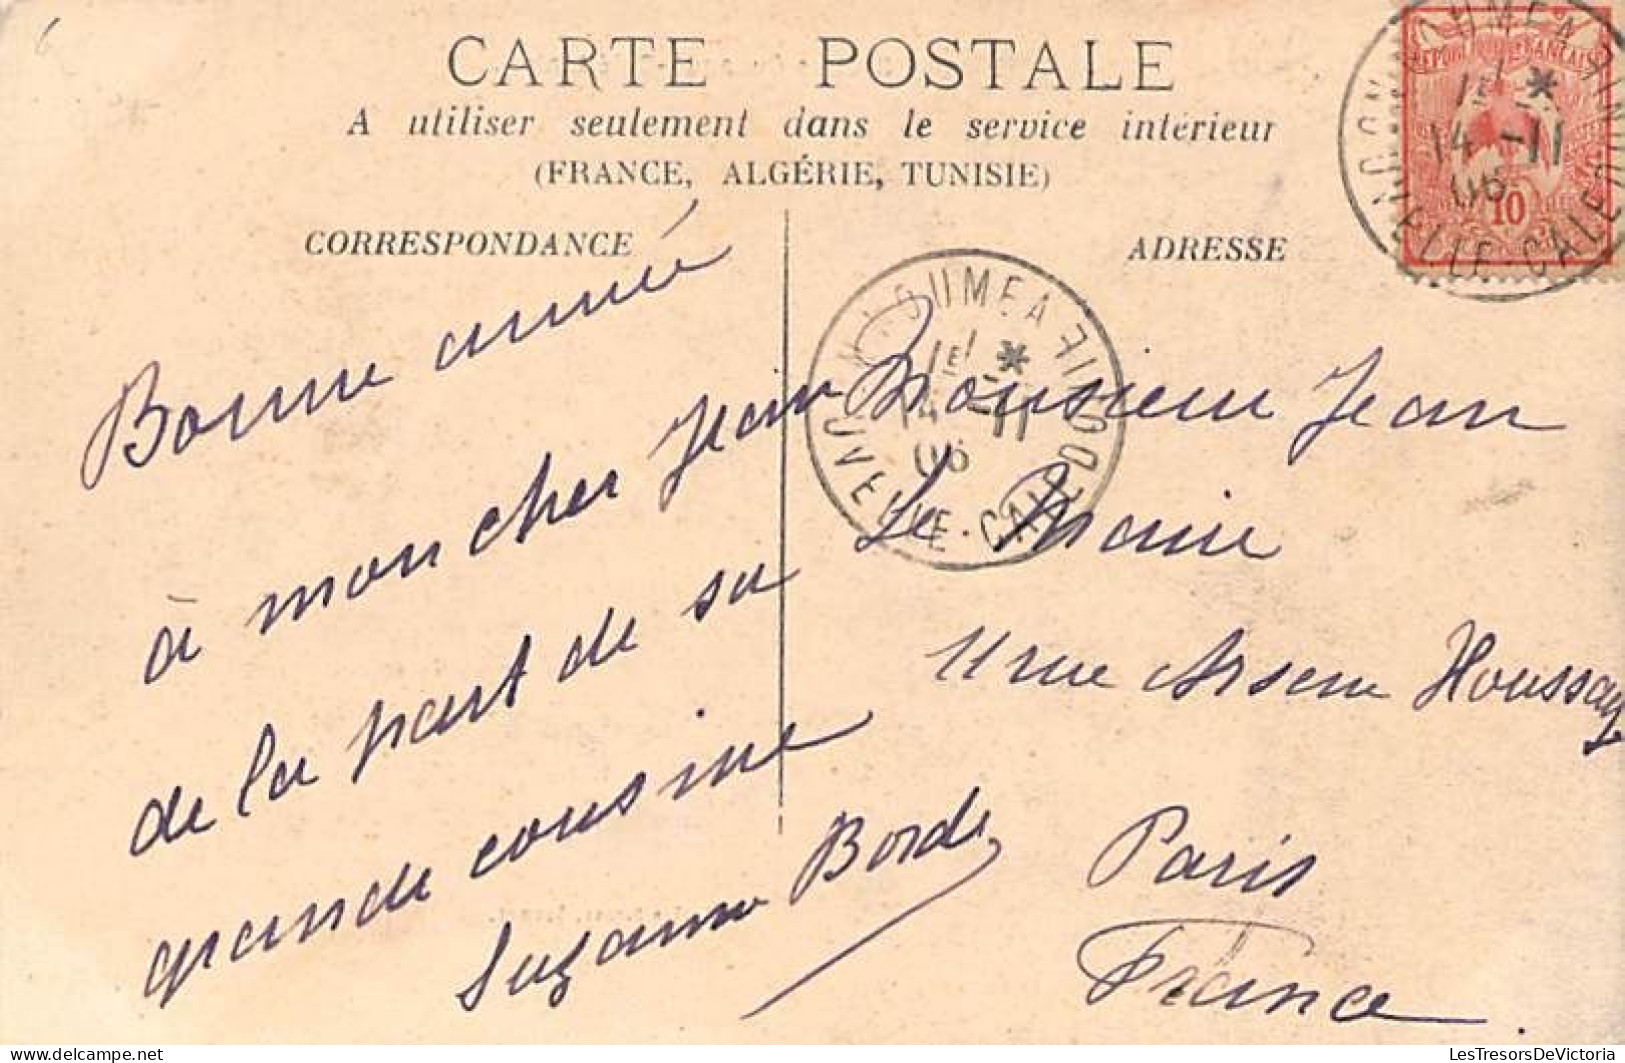 6
CARTE POSTALE
A utiliser seulement dans le service intérieur
(FRANCE, ALGÉRIE, TUNISIE)
CORRESPONDANCE
ADRESSE
RÉPUBLIQUE FRANÇAISE
10
NOUMEA
1E *
14 -11
06
NOUVELLE-CALEDONIE
NOUMEA
1E *
14 -11
06
NOUVELLE-CALEDONIE
Bonne année
à mon cher Jean
de la part de sa
grande cousine
Suzanne Borde
Monsieur Jean
Le Maire
11 rue Arsene Houssay
Paris
France.
delcampe.net
LesTresorsDeVictoria